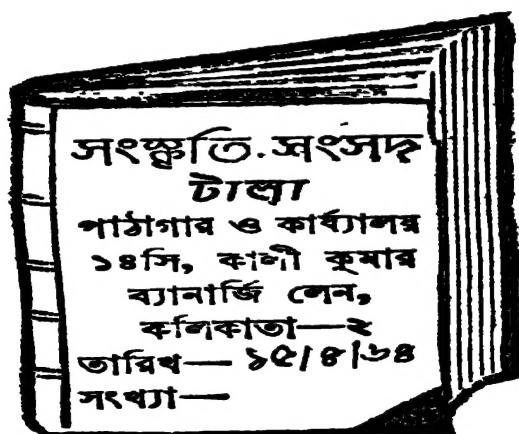 সংস্কৃতি.সংসদ
টালা
পাঠাগার ও কার্য্যালয়
১৪সি, কালী কুমার
ব্যানার্জি লেন,
কলিকাতা—২
তারিখ— ১৫/৪/৬৪
সংখ্যা—